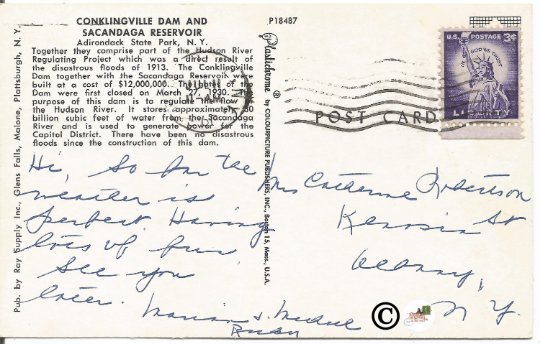 CONKLINGVILLE DAM AND
SACANDAGA RESERVOIR
Adirondack State Park, N. Y.
Together they comprise part of the Hudson River
Regulating Project which was a direct result of
the disastrous floods of 1913. The Conklingville
Dam together with the Sacandaga Reservoir were
built at a cost of $12,000,000. The gates of the
Dam were first closed on March 27, 1930. The
purpose of this dam is to regulate the flow of
the Hudson River. It stores approximately
billion cubic feet of water from the Sacandaga
River and is used to generate power for the
Capitol District. There have been no disastrous
floods since the construction of this dam.
Hi, So far the
weather is
perfect. Having
lots of fun
See you
later.
Marian &
Pub. by Ray Supply Inc., Glens Falls, Malone, Plattsburgh, N. Y.
Plastichrome ® by COLOURPICTURE PUBLISHERS, INC., Boston 15, Mass., U.S.A.
P18487
U.S. POSTAGE 3¢
IN GOD WE TRUST
LIBERTY
POST CARD
Mrs Catherine Robertson
St
Albany,
N. Y.
©